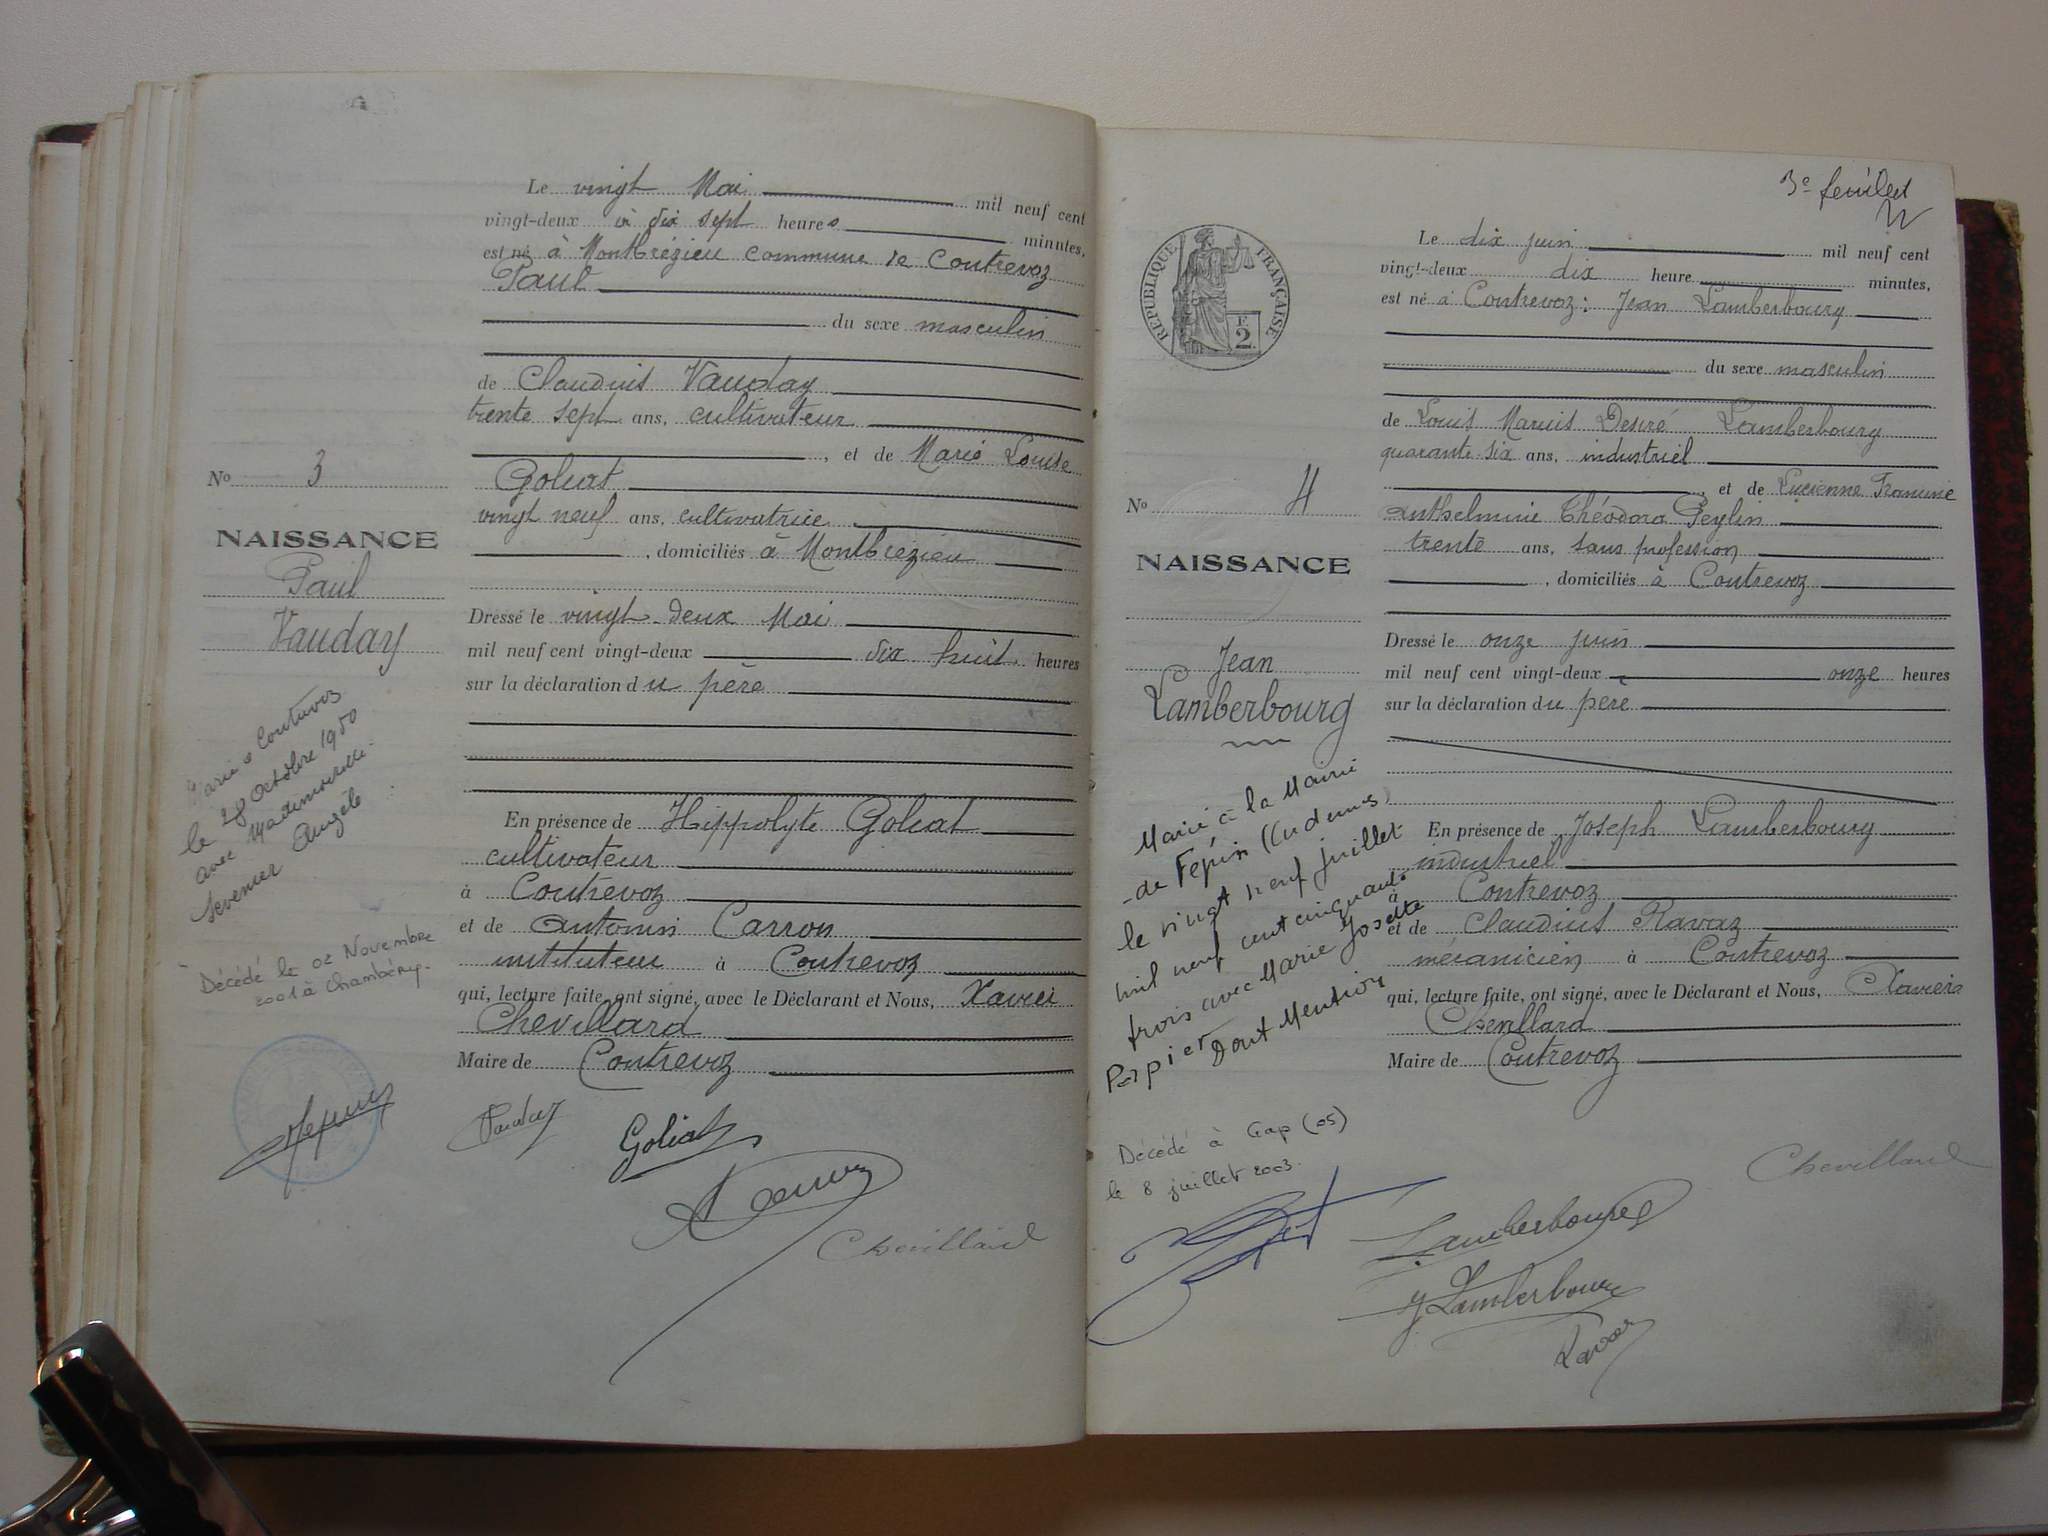 Le vingt Mai mil neuf cent
vingt-deux à dix sept heures minutes,
est né à Montbrézieu commune de Contrevoz
Paul
du sexe masculin
de Claudius Vauday
trente sept ans, cultivateur
, et de Marie Louise
Goliat
vingt neuf ans, cultivatrice
, domiciliés à Montbrézieu
Dressé le vingt-deux Mai
mil neuf cent vingt-deux dix huit heures
sur la déclaration du père
En présence de Hippolyte Goliat
cultivateur
à Contrevoz
et de Antonin Carron
instituteur à Contrevoz
qui, lecture faite, ont signé, avec le Déclarant et Nous, Xavier
Chevillard
Maire de Contrevoz
No 3
NAISSANCE
Paul
Vauday
Marié à Contrevoz
le 28 Octobre 1950
avec Mademoiselle
Sevenier Angèle
Décédé le 02 Novembre
2001 à Chambéry.
Vauday
Goliat
Chevillard
3e feuillet
RÉPUBLIQUE FRANÇAISE
F.
2.
Le dix juin mil neuf cent
vingt-deux dix heure minutes,
est né à Contrevoz: Jean Lamberbourg
du sexe masculin
de Louis Marius Desiré Lamberbourg
quarante six ans, industriel
, et de Lucienne Francine
Anthelmine Théodora Peylin
trente ans, sans profession
, domiciliés à Contrevoz
Dressé le onze juin
mil neuf cent vingt-deux onze heures
sur la déclaration du père
En présence de Joseph Lamberbourg
industriel
à Contrevoz
et de Claudius Ravaz
mécanicien à Contrevoz
qui, lecture faite, ont signé, avec le Déclarant et Nous, Xavier
Chevillard
Maire de Contrevoz
No 4
NAISSANCE
Jean
Lamberbourg
Marié à la Mairie
de Fépin (Ardennes)
le vingt neuf juillet
mil neuf cent cinquante
trois avec Marie Josette
Perpiet
Dont Mention
Décédé à Gap (05)
le 8 juillet 2003.
Chevillard
Lamberbourg
J Lamberbourg
Ravaz